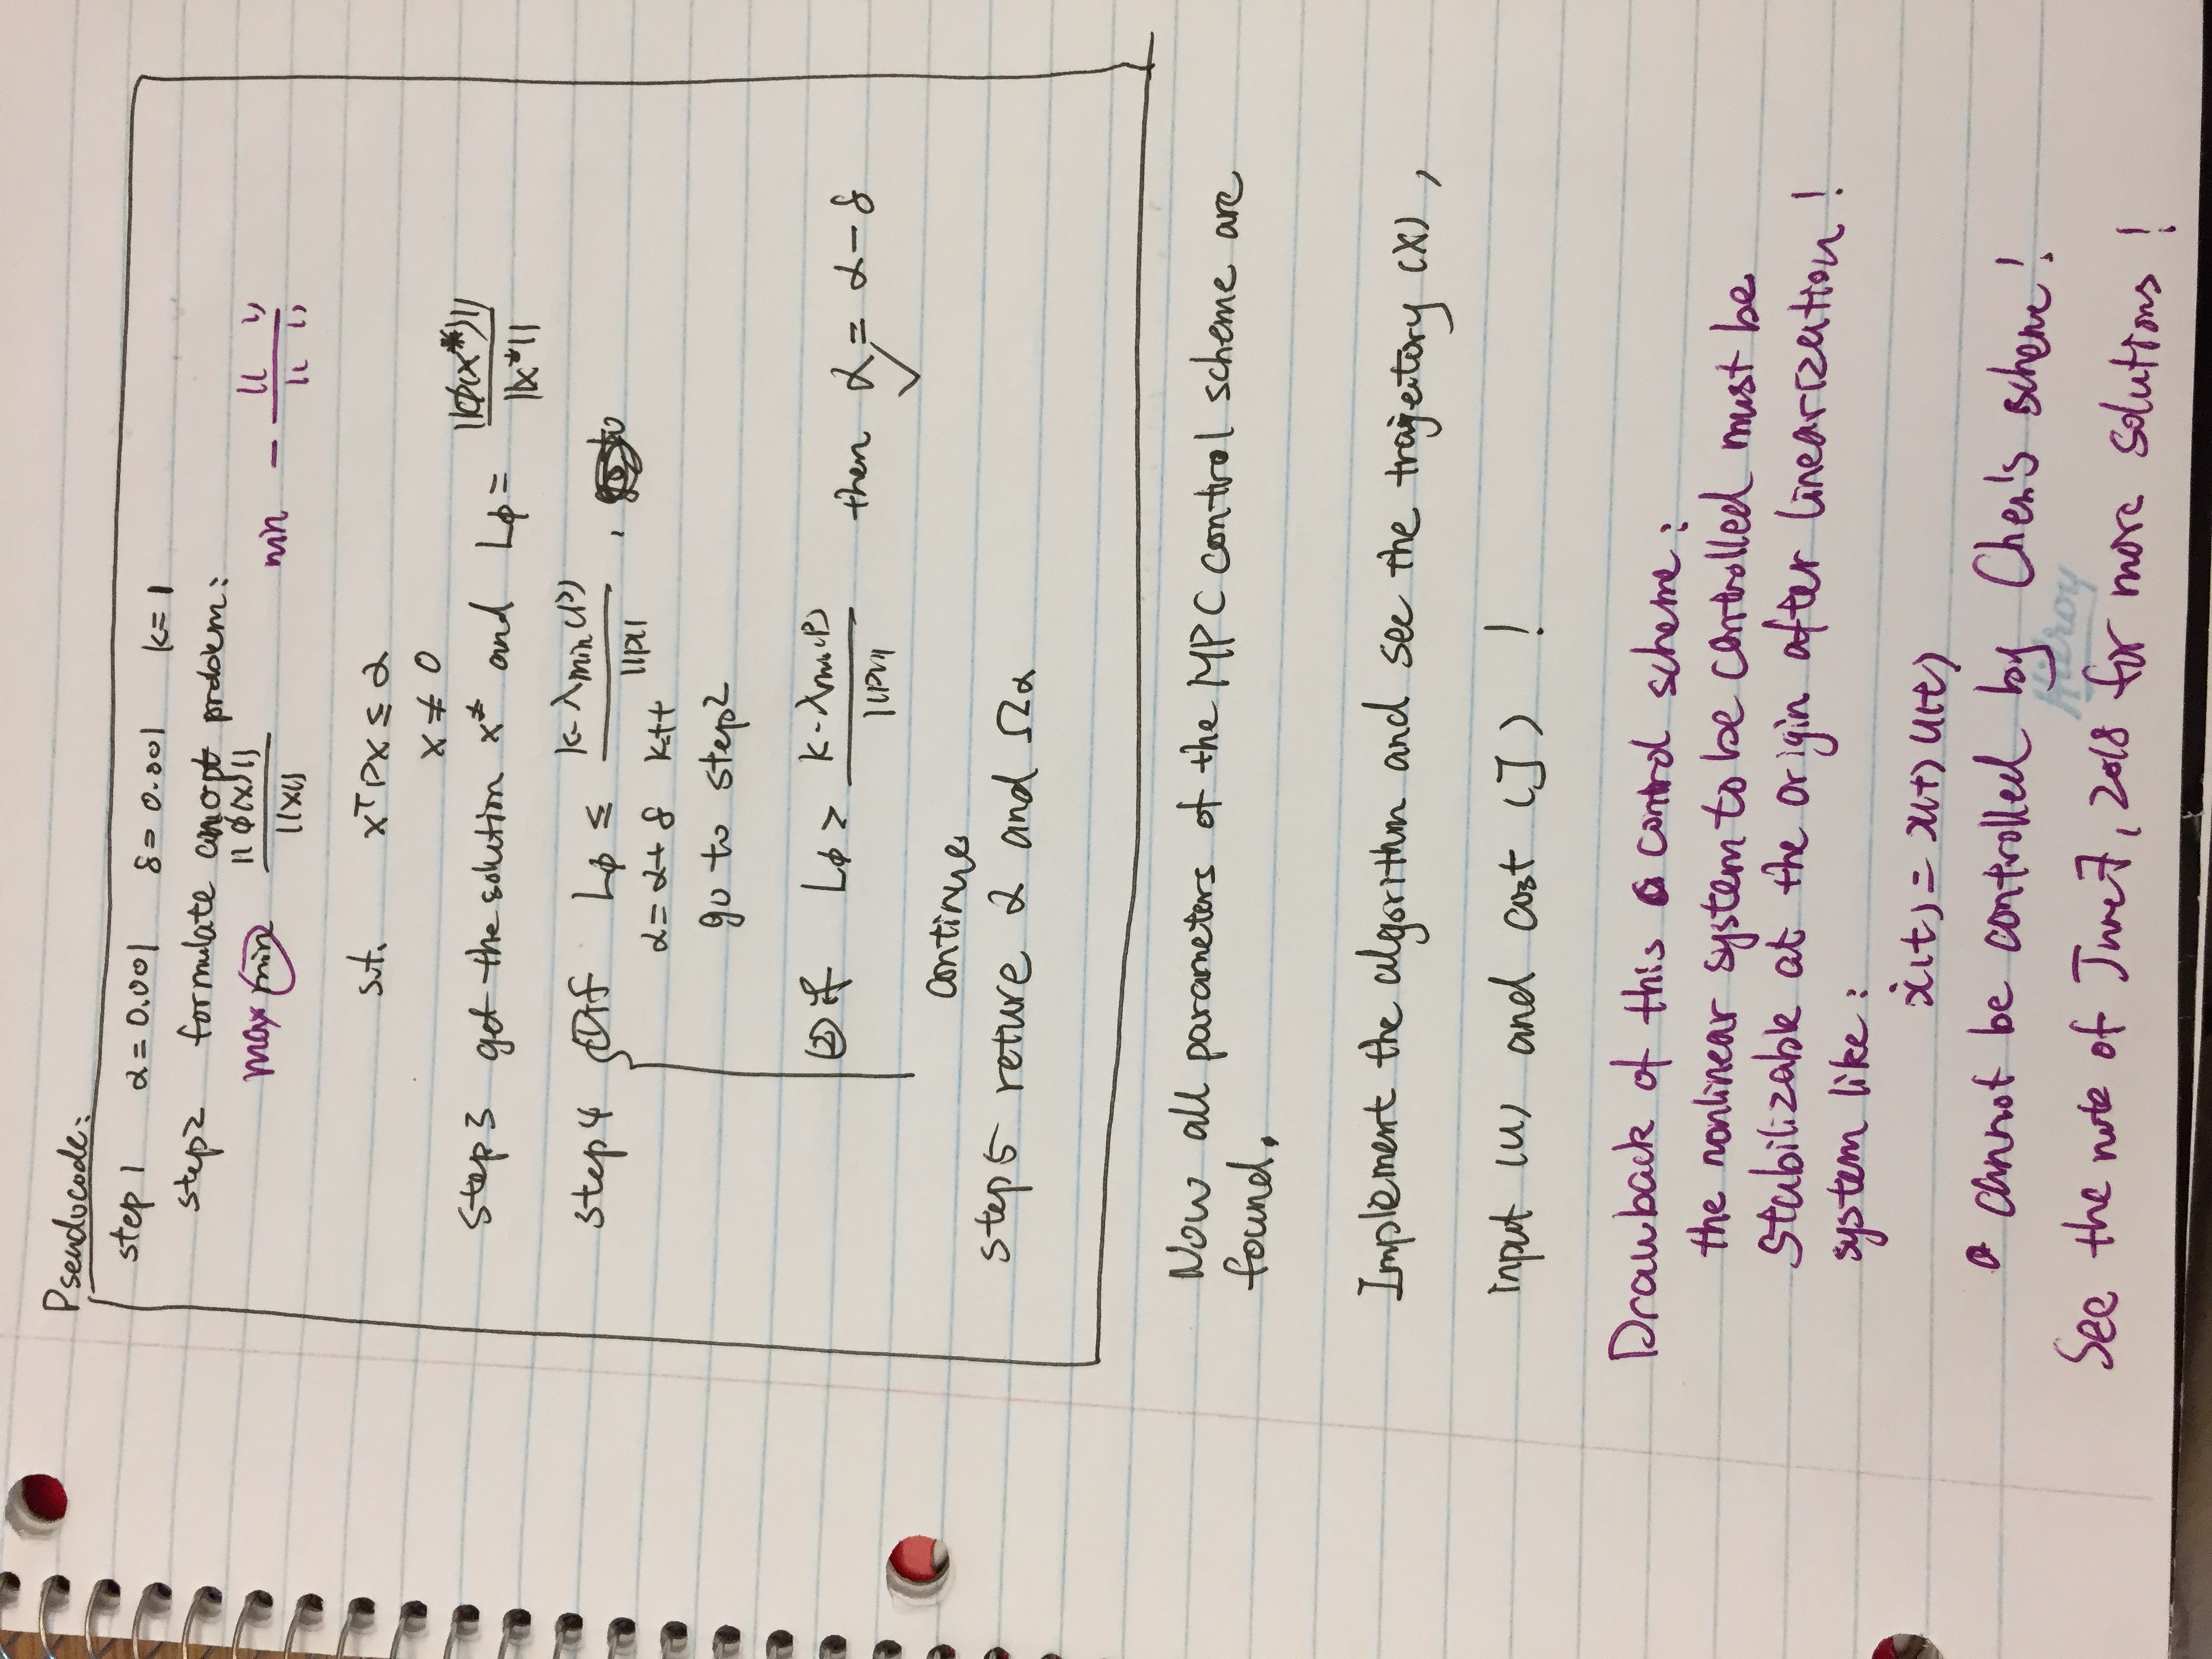 Pseudocode:
step 1 α = 0.001 δ = 0.001 k = 1
step2 formulate an opt problem:
max min ||φ(x)|| / ||x|| min - || || / || ||
s.t. xᵀPx ≤ α
x ≠ 0
step3 get the solution x* and Lφ = ||φ(x*)|| / ||x*||
step 4 ① if Lφ ≤ k·λmin(P) / ||P|| ,
α = α + δ k++
go to step2
② if Lφ > k·λmin(P) / ||P|| then α = α - δ ✓
continue
step 5 reture α and Ωα
Now all parameters of the MPC control scheme are
found.
Implement the algorithm and see the trajectory (X),
input (u) and cost (J) !
Drawback of this control scheme:
the nonlinear system to be controlled must be
stabilizable at the origin after linearization!
system like:
ẋ(t) = x(t) u(t)
cannot be controlled by Chen's scheme!
Hieroy
See the note of June 7, 2018 for more solutions!